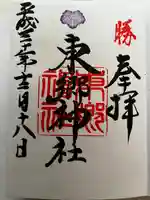 勝
奉拝
東郷神社
平成三十年十二月十八日